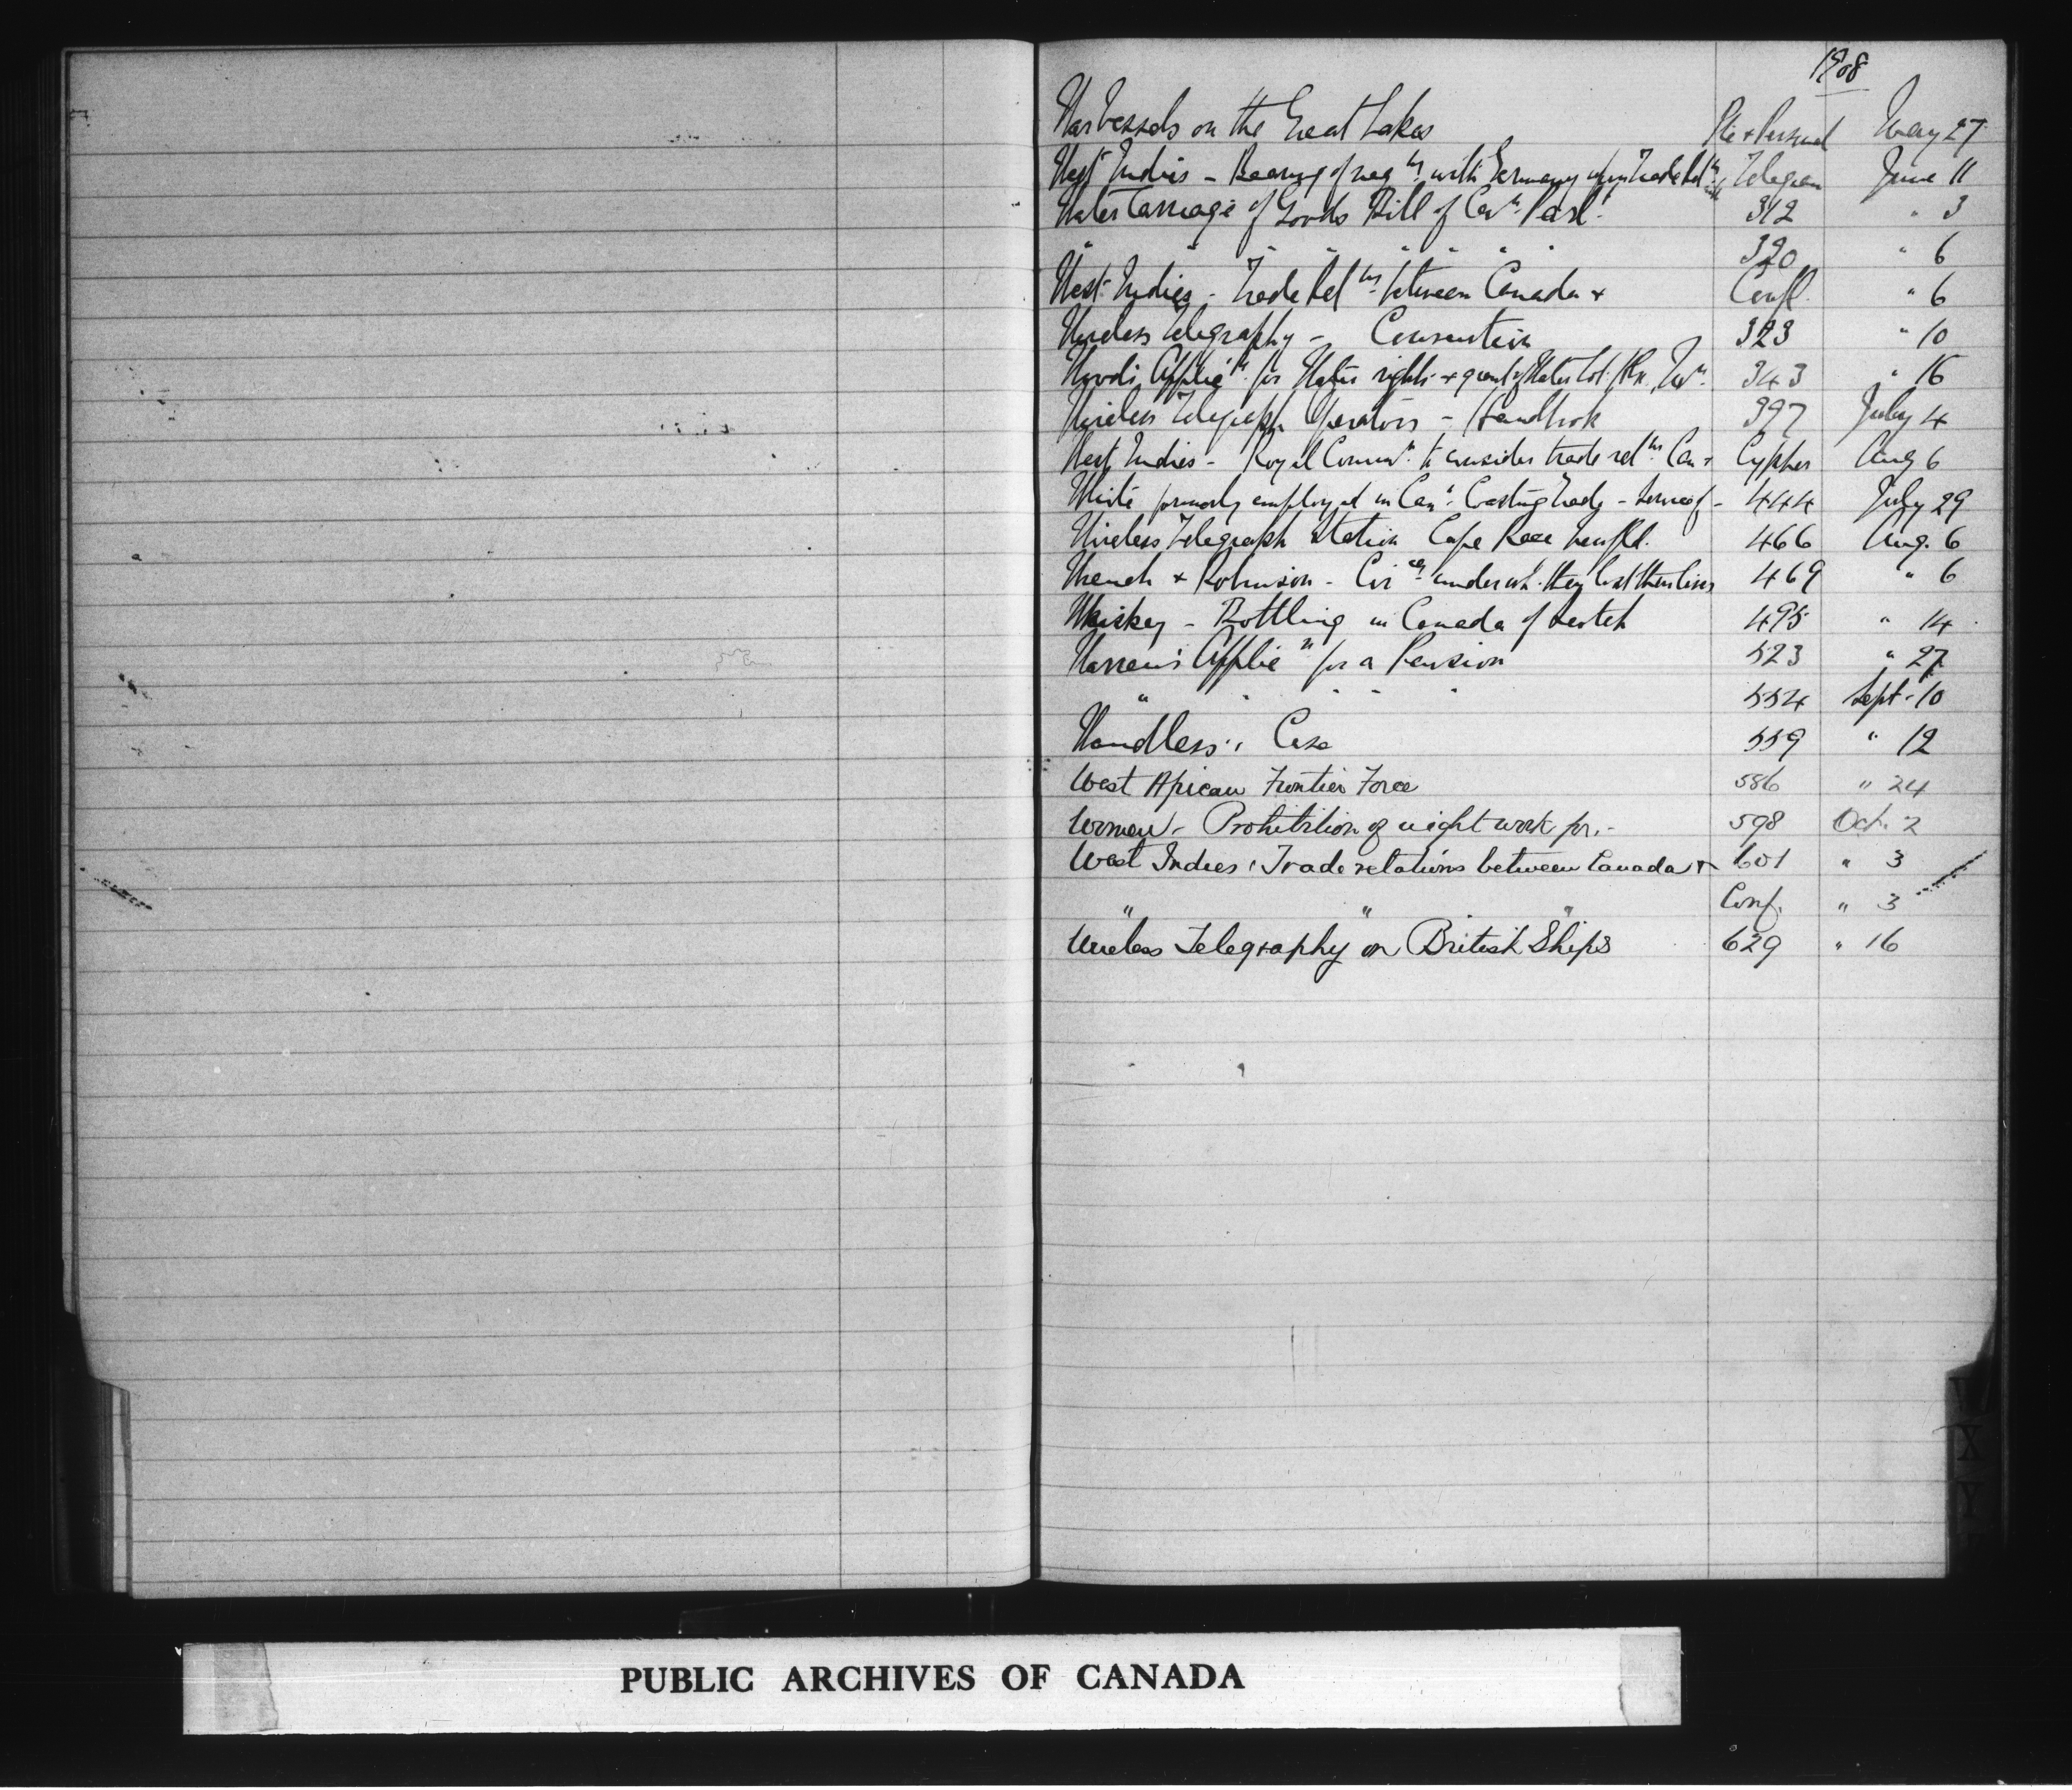 1908
War Vessels on the Great Lakes Pte & Personal May 27
West Indies - Bearing of neg ns with Germany upon trade rel ns with Telegram June 11
Water Carriage of Goods Bill of Can. Parlt. 312 " 3
" " " " " " " 320 " 6
West Indies - Trade Rel ns between Canada & Confl. " 6
Wireless Telegraphy - Convention 323 " 10
Wood's Applic n for Water rights & grant of Water Lot 343 " 16
Wireless Telegraph Operators - Handbook 397 July 4
West Indies - Royal Comm n to consider trade rel ns Can & Cypher Aug 6
White formerly employed in Can n Coasting Trade - 444 July 29
Wireless Telegraph Station Cape Race Newfld. 466 Aug. 6
& Robinson - Cir ces under wh. they lost their lives 469 " 6
Whiskey - Bottling in Canada of Scotch 495 " 14
Warren's Applic n for a Pension 523 " 27
" " " " " 554 Sept. 10
Wandless's Case 559 " 12
West African Frontier Force 586 " 24
Women - Prohibition of night work for - 598 Oct. 2
West Indies : Trade relations between Canada & 601 " 3
" " " Conf. " 3
Wireless Telegraphy on British Ships 629 " 16
W
X
Y
PUBLIC ARCHIVES OF CANADA